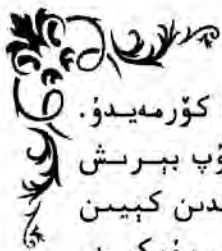 كۆرمەيدۇ.
ۇپ بېرىش
دىن كېيىن